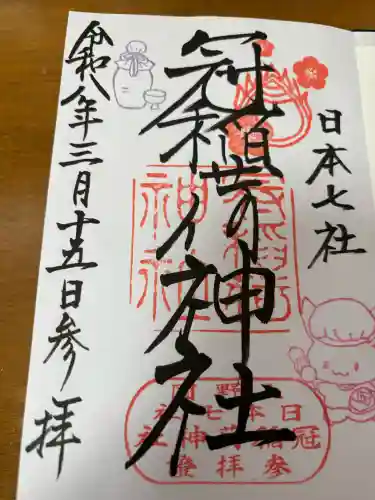 日本七社
冠稲荷神社
令和八年三月十五日参拝
日本七社
冠稲荷神社